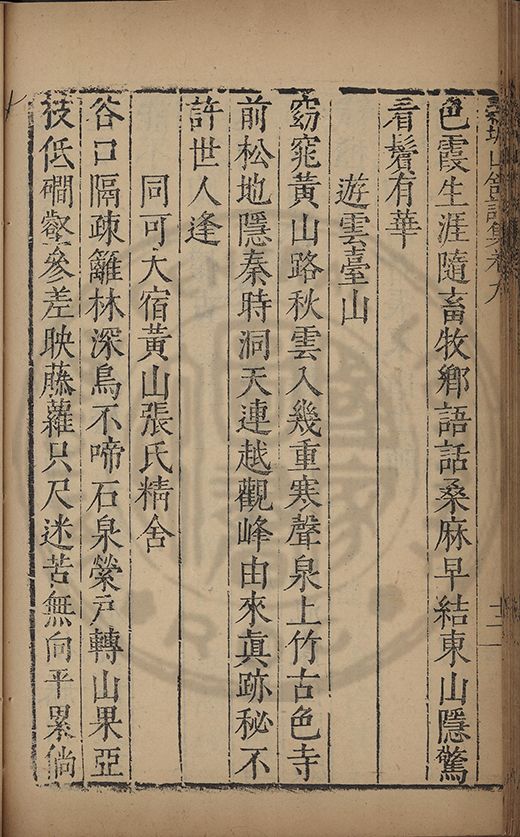 色霞生涯隨畜牧鄉語話桑麻早結東山隱驚
看鬢有華
遊雲臺山
窈窕黃山路秋雲入幾重寒聲泉上竹古色寺
前松地隱秦時洞天連越觀峰由來眞跡秘不
許世人逢
同可大宿黃山張氏精舍
谷口隔疎籬林深鳥不啼石泉縈戸轉山果亞
枝低磵壑參差映藤蘿只尺迷苦無向平累倘